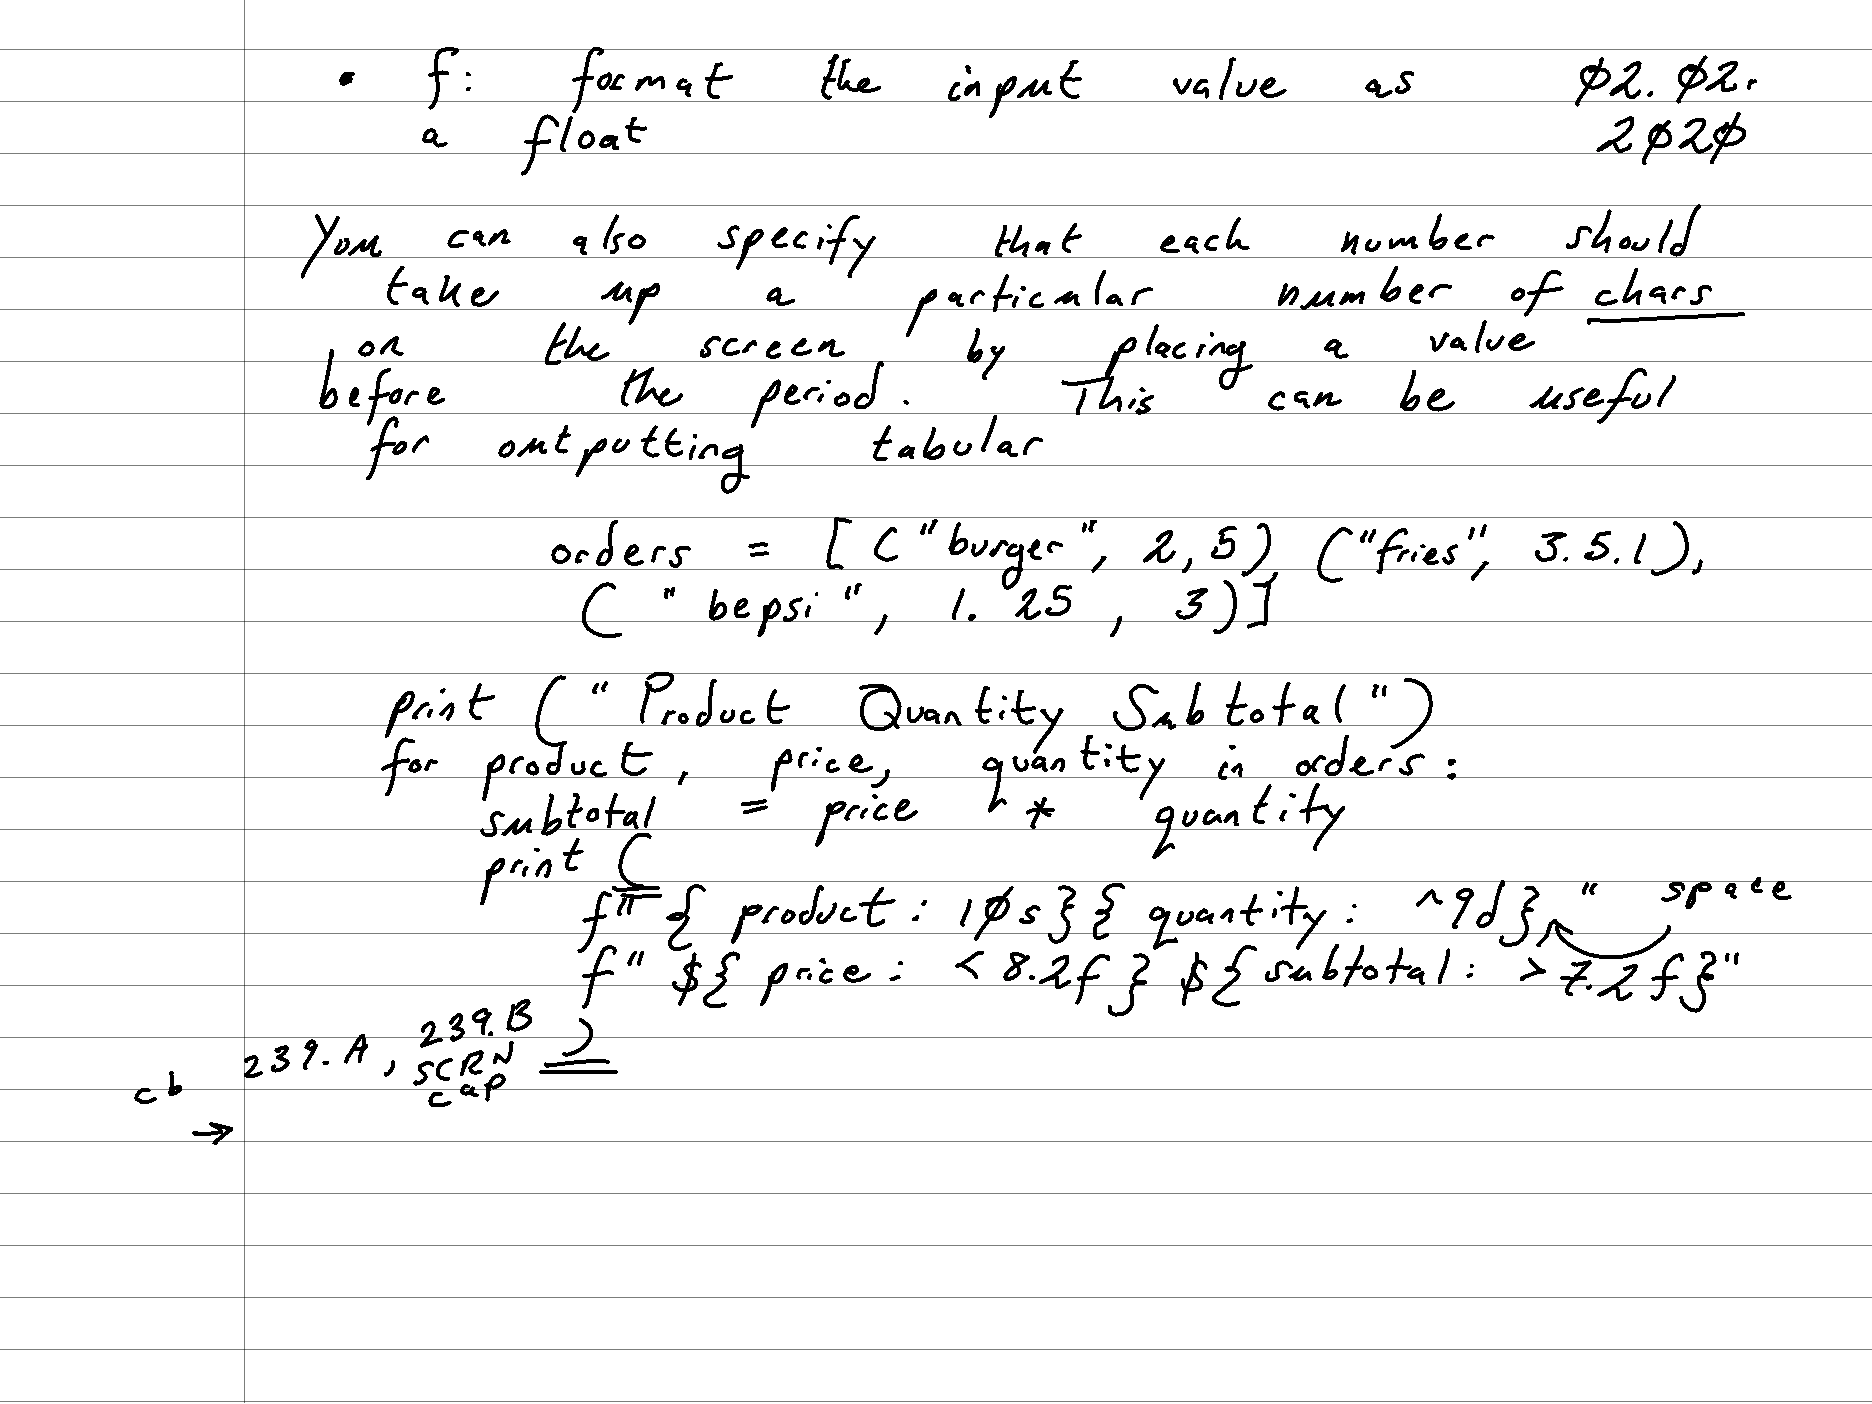 • f: format the input value as ∅2. ∅2.
a float 2∅2∅
You can also specify that each number should
take up a particular number of chars
on the screen by placing a value
before the period. This can be useful
for outputting tabular
orders = [("burger", 2,5), ("fries", 3.5.1),
("bepsi", 1.25, 3)]
print ("Product Quantity Subtotal")
for product, price, quantity in orders:
subtotal = price * quantity
print (
f"{product: 1∅s}{quantity: ^9d} " space
f" ${price: <8.2f} ${subtotal: >7.2f}"
)
239.A, 239.B
SCRN
cap
cb
→